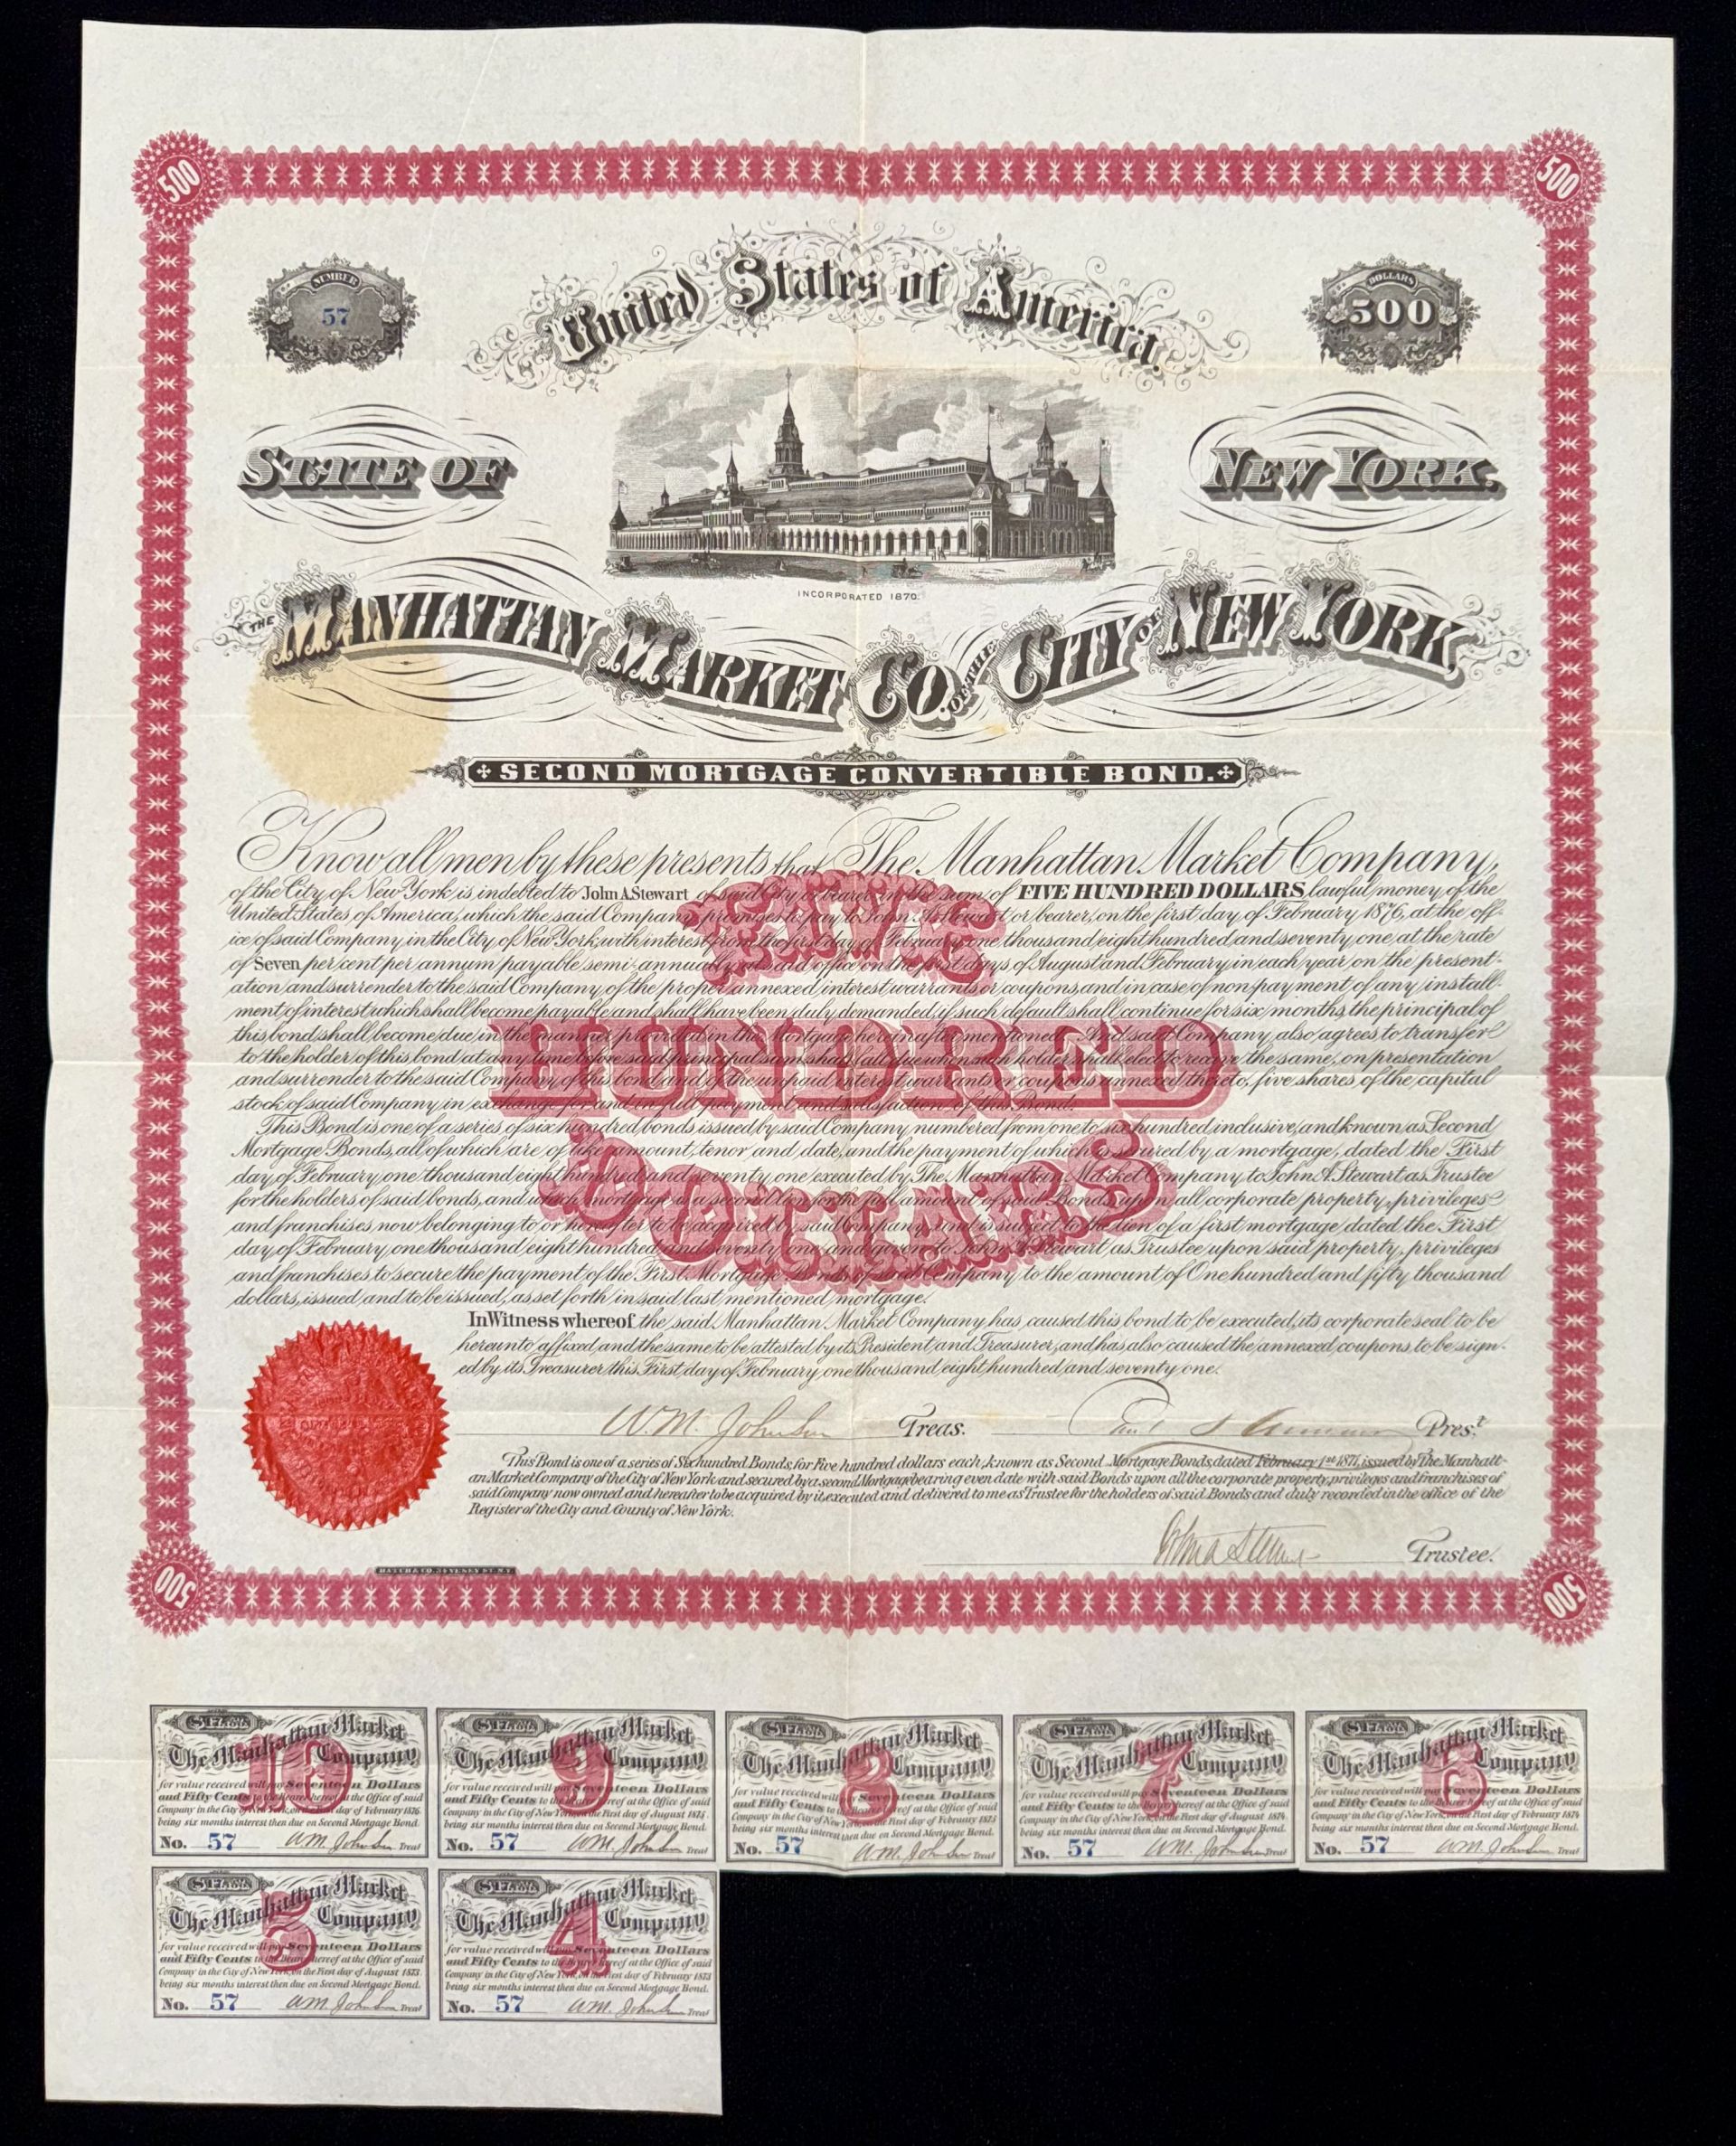 500
500
NUMBER
57
United States of America.
DOLLARS
500
STATE OF
NEW YORK.
INCORPORATED 1870.
THE MANHATTAN MARKET CO. OF THE CITY OF NEW YORK,
SECOND MORTGAGE CONVERTIBLE BOND.
Know all men by these presents that The Manhattan Market Company,
of the City of New York is indebted to John A Stewart of said City or bearer in the sum of FIVE HUNDRED DOLLARS lawful money of the
United States of America, which the said Company promises to pay to John A. Stewart or bearer, on the first day of February 1876, at the off-
ice of said Company in the City of New York, with interest from the first day of February one thousand eight hundred and seventy one at the rate
of Seven per cent per annum payable semi-annually at said office on the first days of August and February in each year on the present-
ation and surrender to the said Company of the proper annexed interest warrants or coupons, and in case of non payment of any install-
ment of interest which shall become payable and shall have been duly demanded, if such default shall continue for six months, the principal of
this bond shall become due in the manner provided in the Mortgage hereinafter mentioned. And said Company also agrees to transfer
to the holder of this bond at any time before said principal sum shall fall due when such holder shall elect to receive the same, on presentation
and surrender to the said Company of this bond and of the unpaid interest warrants or coupons annexed thereto, five shares of the capital
stock of said Company in exchange for and in full payment and satisfaction of this Bond.
This Bond is one of a series of six hundred bonds issued by said Company numbered from one to six hundred inclusive, and known as Second
Mortgage Bonds, all of which are of like amount, tenor and date, and the payment of which is secured by a mortgage, dated the First
day of February one thousand eight hundred and seventy one executed by The Manhattan Market Company to John A. Stewart as Trustee
for the holders of said bonds, and which mortgage is a second lien for the full amount of said Bonds upon all corporate property, privileges
and franchises now belonging to or hereafter to be acquired by said Company, and is subject to the lien of a first mortgage dated the First
day of February one thousand eight hundred and seventy one and given to John A. Stewart as Trustee upon said property, privileges
and franchises to secure the payment of the First Mortgage Bonds of said Company to the amount of One hundred and fifty thousand
dollars, issued and to be issued, as set forth in said last mentioned mortgage.
FIVE
HUNDRED
DOLLARS
In Witness whereof the said Manhattan Market Company has caused this bond to be executed, its corporate seal to be
hereunto affixed and the same to be attested by its President and Treasurer, and has also caused the annexed coupons to be sign-
ed by its Treasurer this First day of February one thousand eight hundred and seventy one.
W. M. Johnson Treas. Pres.t
This Bond is one of a series of Six hundred Bonds, for Five hundred dollars each, known as Second Mortgage Bonds, dated February 1st 1871, issued by the Manhatt-
an Market Company of the City of New York and secured by a second Mortgage bearing even date with said Bonds upon all the corporate property, privileges and franchises of
said Company now owned and hereafter to be acquired by it, executed and delivered to me as Trustee for the holders of said Bonds and duly recorded in the office of the
Register of the City and County of New York.
John A Stewart Trustee.
500
500
$17.50/100
The Manhattan Market
Company
10
for value received will pay Seventeen Dollars
and Fifty Cents to the Bearer hereof at the Office of said
Company in the City of New York, on the First day of February 1876
being six months interest then due on Second Mortgage Bond.
No. 57 W.M. Johnson Treas
$17.50/100
The Manhattan Market
Company
9
for value received will pay Seventeen Dollars
and Fifty Cents to the Bearer hereof at the Office of said
Company in the City of New York, on the First day of August 1875
being six months interest then due on Second Mortgage Bond.
No. 57 W.M. Johnson Treas
$17.50/100
The Manhattan Market
Company
8
for value received will pay Seventeen Dollars
and Fifty Cents to the Bearer hereof at the Office of said
Company in the City of New York, on the First day of February 1875
being six months interest then due on Second Mortgage Bond.
No. 57 W.M. Johnson Treas
$17.50/100
The Manhattan Market
Company
7
for value received will pay Seventeen Dollars
and Fifty Cents to the Bearer hereof at the Office of said
Company in the City of New York, on the First day of August 1874
being six months interest then due on Second Mortgage Bond.
No. 57 W.M. Johnson Treas
$17.50/100
The Manhattan Market
Company
6
for value received will pay Seventeen Dollars
and Fifty Cents to the Bearer hereof at the Office of said
Company in the City of New York, on the First day of February 1874
being six months interest then due on Second Mortgage Bond.
No. 57 W.M. Johnson Treas
$17.50/100
The Manhattan Market
Company
5
for value received will pay Seventeen Dollars
and Fifty Cents to the Bearer hereof at the Office of said
Company in the City of New York, on the First day of August 1873
being six months interest then due on Second Mortgage Bond.
No. 57 W.M. Johnson Treas
$17.50/100
The Manhattan Market
Company
4
for value received will pay Seventeen Dollars
and Fifty Cents to the Bearer hereof at the Office of said
Company in the City of New York, on the First day of February 1873
being six months interest then due on Second Mortgage Bond.
No. 57 W.M. Johnson Treas